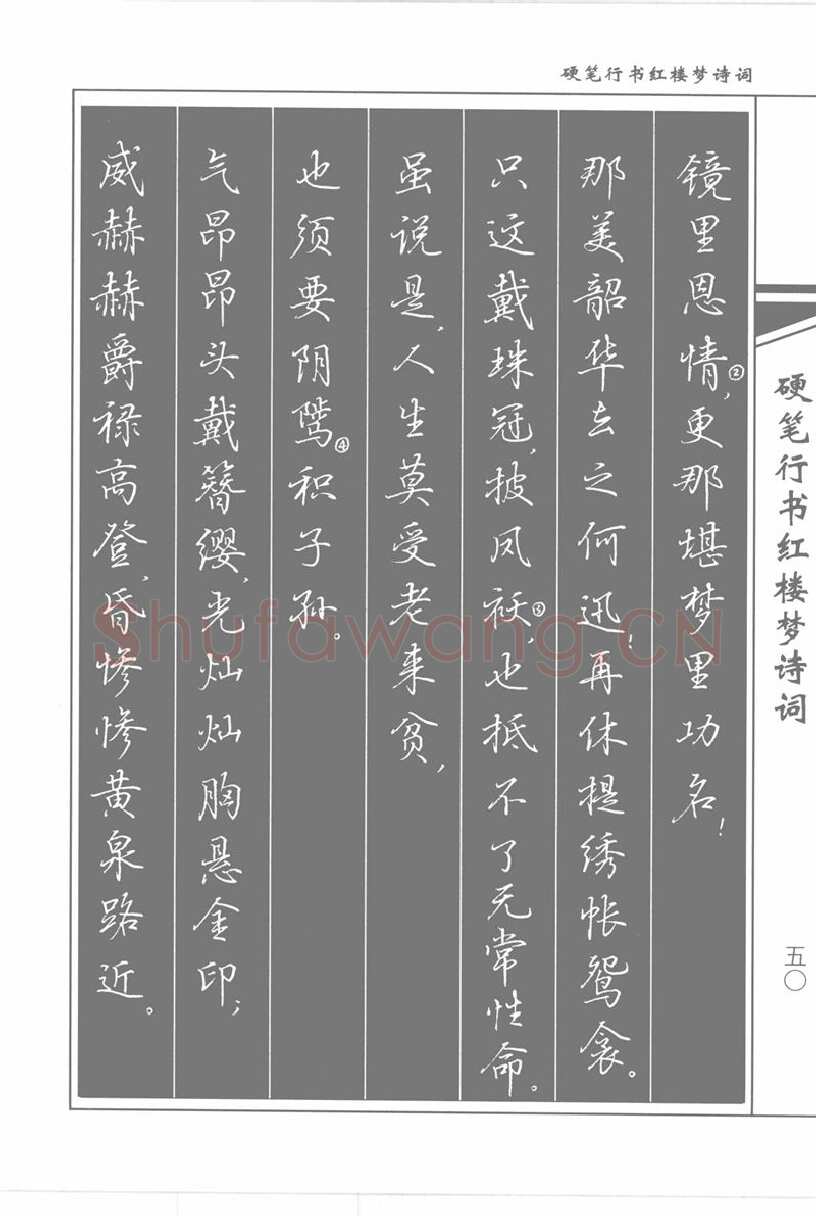 硬笔行书红楼梦诗词
镜里恩情②,更那堪梦里功名!
那美韶华去之何迅!再休提绣帐鸳衾。
只这戴珠冠,披凤袄③,也抵不了无常性命。
虽说是,人生莫受老来贫,
也须要阴骘④积子孙。
气昂昂头戴簪缨,光灿灿胸悬金印;
威赫赫爵禄高登,昏惨惨黄泉路近。
硬笔行书红楼梦诗词
五〇
Shufawang.CN